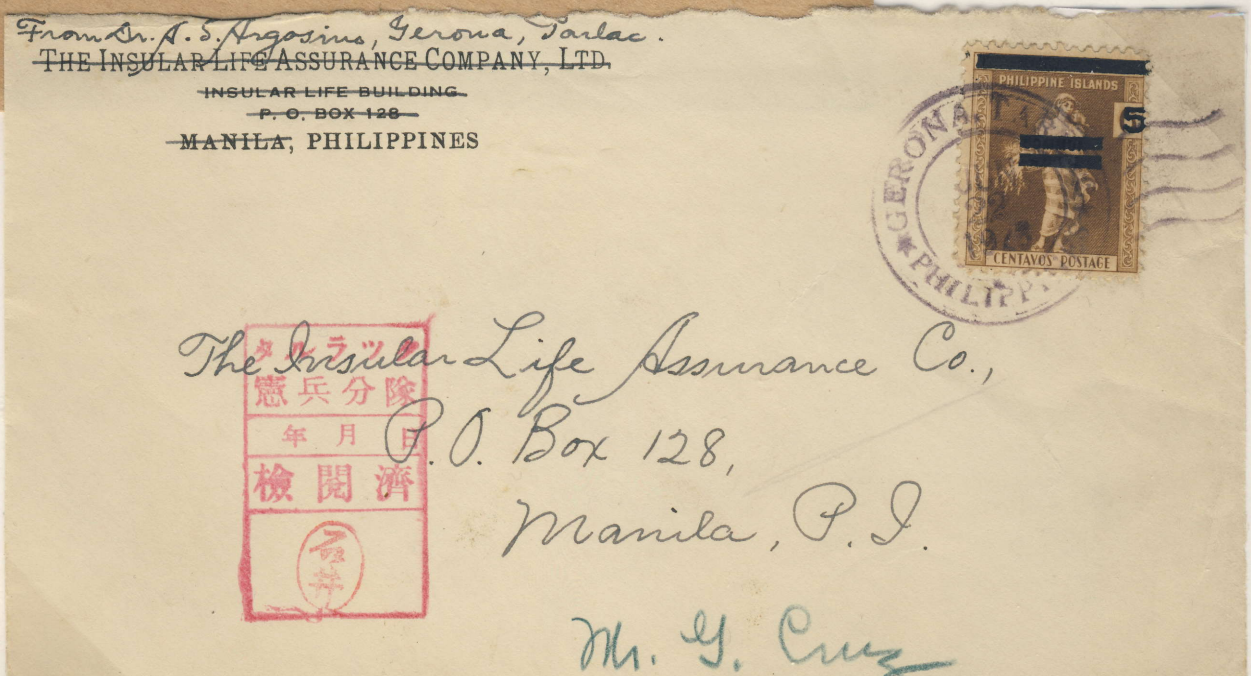 From Dr. A. S. Argosino, Gerona, Tarlac.
THE INSULAR LIFE ASSURANCE COMPANY, LTD.
INSULAR LIFE BUILDING
P. O. BOX 128
MANILA, PHILIPPINES
PHILIPPINE ISLANDS
5
CENTAVOS POSTAGE
GERONA, TAR
22
PHILIPP
The Insular Life Assurance Co.,
P.O. Box 128,
Manila, P. I.
Mr. G. Cruz
タルラック
憲兵分隊
年月日
檢閲濟
石井